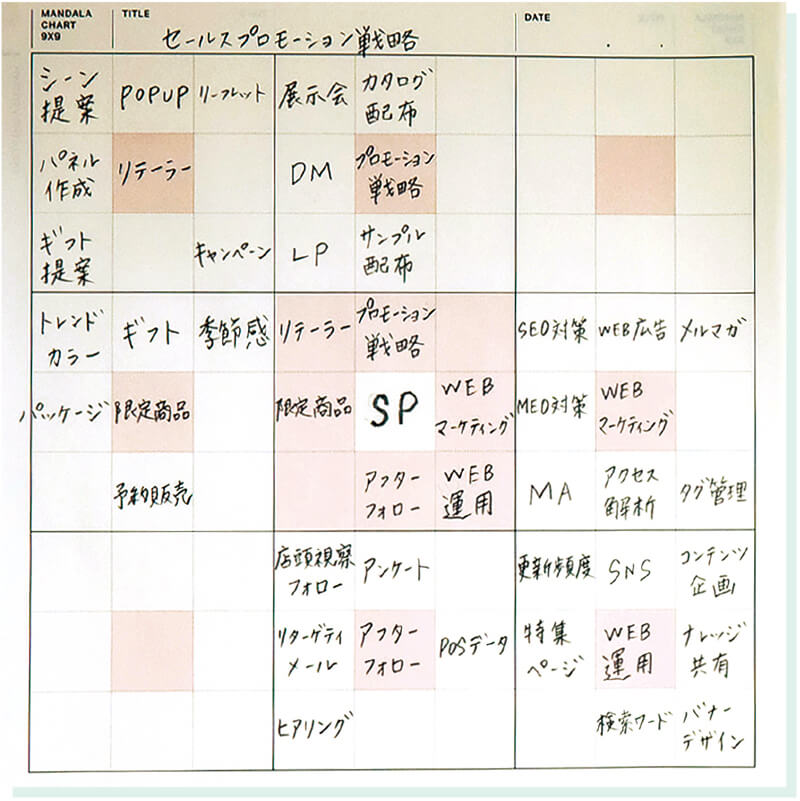 MANDALA
CHART
9X9
TITLE
セールスプロモーション戦略
DATE
シーン
提案
POPUP
リーフレット
展示会
カタログ
配布
パネル
作成
リテーラー
DM
プロモーション
戦略
ギフト
提案
キャンペーン
LP
サンプル
配布
トレンド
カラー
ギフト
季節感
リテーラー
プロモーション
戦略
SEO対策
WEB広告
メルマガ
パッケージ
限定商品
限定商品
SP
WEB
マーケティング
MEO対策
WEB
マーケティング
予約販売
アフター
フォロー
WEB
運用
MA
アクセス
解析
タグ管理
店頭視察
フォロー
アンケート
更新頻度
SNS
コンテンツ
企画
リターゲティ
メール
アフター
フォロー
POSデータ
特集
ページ
WEB
運用
ナレッジ
共有
ヒアリング
検索ワード
バナー
デザイン